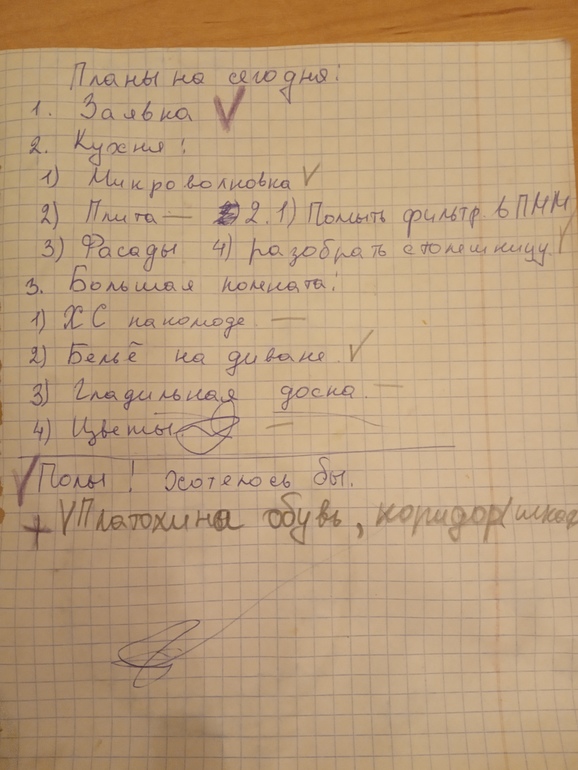 Планы на сегодня:
1. Заявка V
2. Кухня!
1) Микроволновка V
2) Плита — 2.1) Помыть фильтр в ПММ
3) Фасады 4) разобрать столешницу. V
3. Большая комната:
1) ХС на комоде. —
2) Бельё на диване. V
3) Гладильная доска. —
4) Цветы. —
V Полы! хотелось бы.
+ V Платохина обувь, коридор